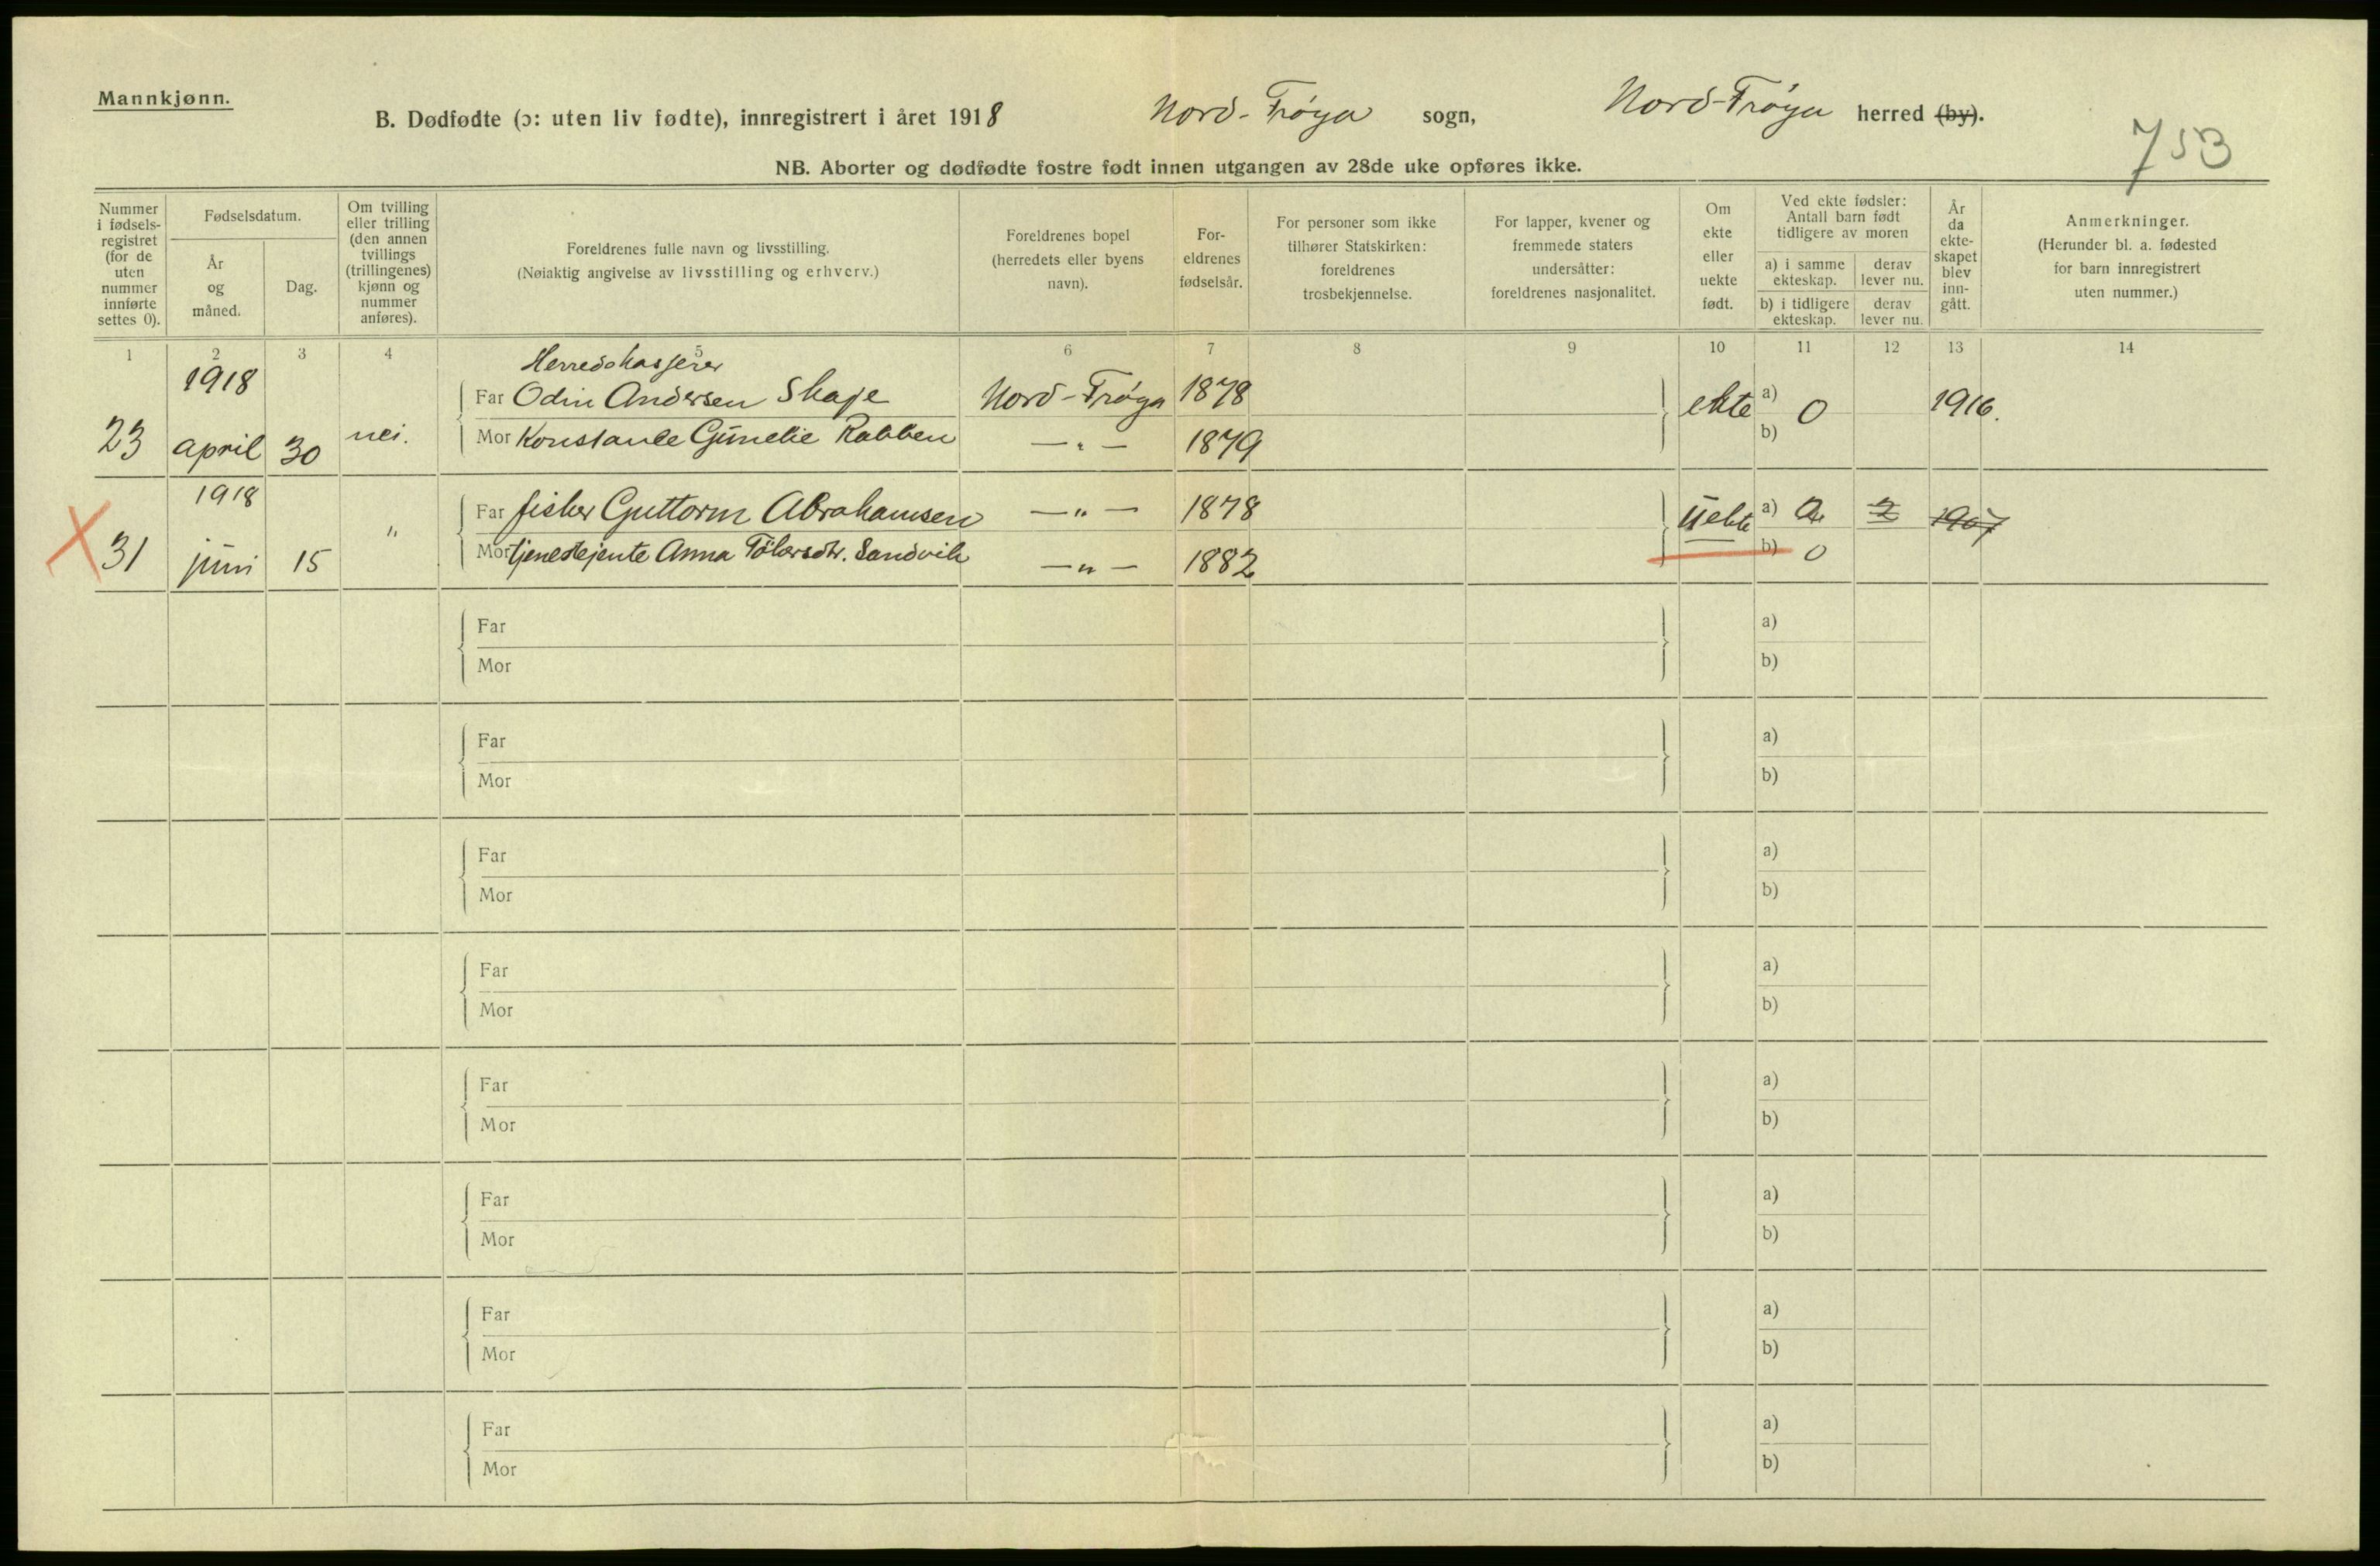 Mannkjønn.
B. Dødfødte (ɔ: uten liv fødte), innregistrert i året 1918 Nord-Frøya sogn, Nord-Frøya herred (by).
753
NB. Aborter og dødfødte fostre født innen utgangen av 28de uke opføres ikke.
Nummer i fødselsregistret (for de uten nummer innførte settes 0).
Fødselsdatum.
År og måned.
Dag.
Om tvilling eller trilling (den annen tvillings (trillingenes) kjønn og nummer anføres).
Foreldrenes fulle navn og livsstilling.
(Nøiaktig angivelse av livsstilling og erhverv.)
Foreldrenes bopel (herredets eller byens navn).
Foreldrenes fødselsår.
For personer som ikke tilhører Statskirken: foreldrenes trosbekjennelse.
For lapper, kvener og fremmede staters undersåtter: foreldrenes nasjonalitet.
Om ekte eller uekte født.
Ved ekte fødsler: Antall barn født tidligere av moren
a) i samme ekteskap. derav lever nu.
b) i tidligere ekteskap. derav lever nu.
År da ekteskapet blev inngått.
Anmerkninger.
(Herunder bl. a. fødested for barn innregistrert uten nummer.)
1 2 3 4 5 6 7 8 9 10 11 12 13 14
1918 Herredskasserer
Far Odin Andersen Skaje Nord-Frøya 1878 ekte a) 0 1916.
23 april 30 nei. Mor Konstanse Gunelie Rabben —"— 1879 b)
1918
Far fisker Guttorm Abrahamsen —"— 1878 uekte a) 2 2 1907
31 juni 15 " Mor tjenestejente Anna Tølersdtr. Sandvik —"— 1882 b) 0
Far a)
Mor b)
Far a)
Mor b)
Far a)
Mor b)
Far a)
Mor b)
Far a)
Mor b)
Far a)
Mor b)
Far a)
Mor b)
Far a)
Mor b)